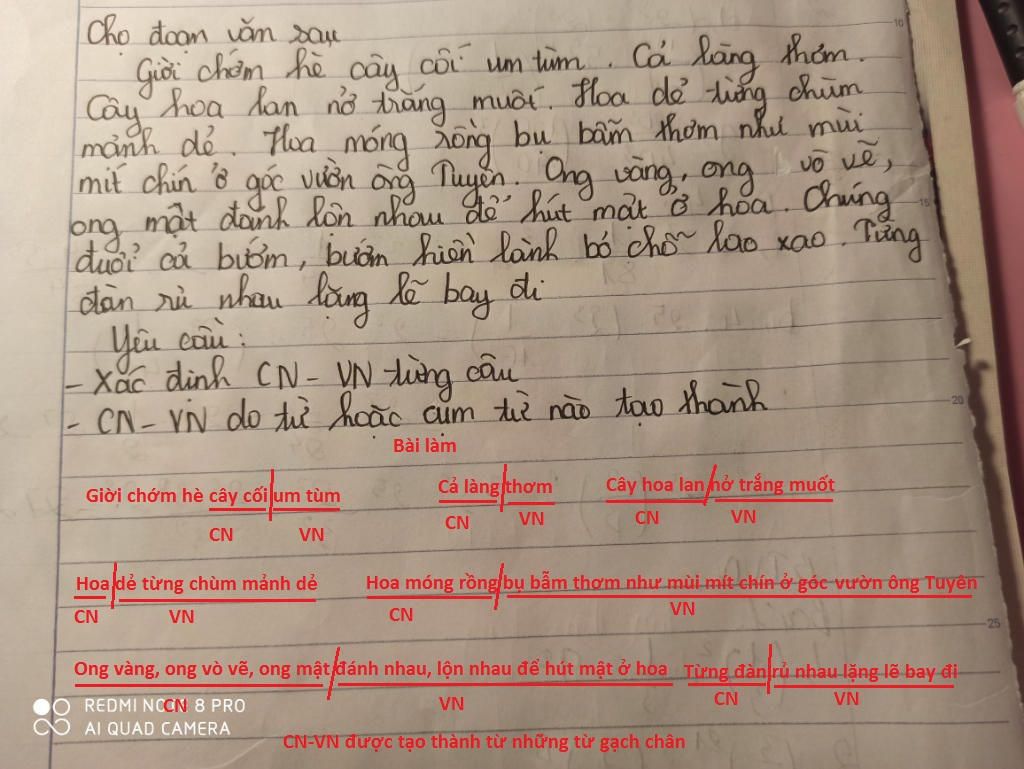 Cho đoạn văn sau
Giời chớm hè cây cối um tùm. Cả làng thơm.
Cây hoa lan nở trắng muốt. Hoa dẻ từng chùm
mảnh dẻ. Hoa móng rồng bụ bẫm thơm như mùi
mít chín ở góc vườn ông Tuyên. Ong vàng, ong vò vẽ,
ong mật đánh lộn nhau để hút mật ở hoa. Chúng
đuổi cả bướm, bướm hiền lành bỏ chỗ lao xao. Từng
đàn rủ nhau lặng lẽ bay đi
Yêu cầu:
- Xác định CN-VN từng câu
- CN-VN do từ hoặc cụm từ nào tạo thành
Bài làm
Giời chớm hè cây cối/um tùm Cả làng/thơm Cây hoa lan/nở trắng muốt
CN VN CN VN CN VN
Hoa/dẻ từng chùm mảnh dẻ Hoa móng rồng/bụ bẫm thơm như mùi mít chín ở góc vườn ông Tuyên
CN VN CN VN
Ong vàng, ong vò vẽ, ong mật/đánh nhau, lộn nhau để hút mật ở hoa Từng đàn/rủ nhau lặng lẽ bay đi
CN VN CN VN
REDMI NOTE 8 PRO
AI QUAD CAMERA
CN-VN được tạo thành từ những từ gạch chân
10
15
20
25